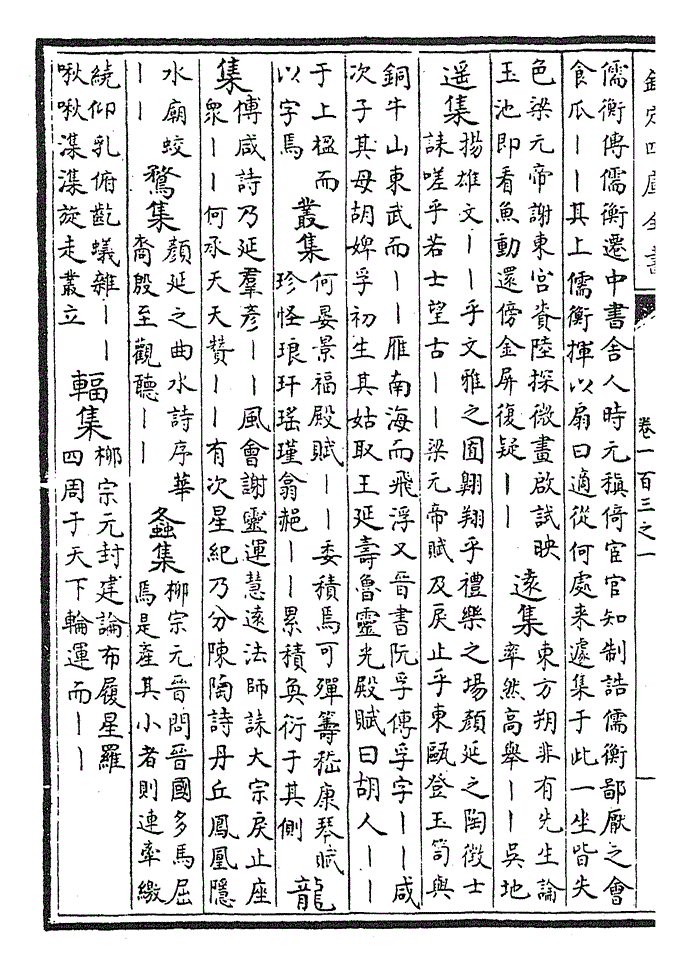 欽定四庫全書
卷一百三之一
儒衡傳儒衡遷中書舍人時元稹倚宦官知制誥儒衡鄙厭之會
食瓜丨丨其上儒衡揮以扇曰適從何處來遽集于此一坐皆失
色梁元帝謝東宮賚陸探微畫啟試映
玉池即看魚動還傍金屏復疑丨丨
遠集
東方朔非有先生論
率然高舉丨丨吳地
遥集
揚雄文丨丨乎文雅之囿翺翔乎禮樂之場顔延之陶徵士
誄嗟乎若士望古丨丨梁元帝賦及戾止乎東甌登玉笥與
銅牛山東武而丨丨雁南海而飛浮又晉書阮孚傳孚字丨丨咸
次子其母胡婢孚初生其姑取王延壽魯靈光殿賦曰胡人丨丨
于上楹而
以字焉
叢集
何晏景福殿賦丨丨委積焉可殫籌嵇康琴賦
珍怪琅玕瑤瑾翕赩丨丨累積奐衍于其側
龍
集
傅咸詩乃延羣彦丨丨風會謝靈運慧遠法師誄大宗戾止座
衆丨丨何承天天贊丨丨有次星紀乃分陳陶詩丹丘鳳凰隱
水廟蛟
丨丨
鶩集
顔延之曲水詩序華
裔殷至觀聽丨丨
螽集
柳宗元晉問晉國多馬屈
焉是產其小者則連牽繳
繞仰乳俯齕蟻雜丨丨
啾啾㵩㵩旋走叢立
輻集
柳宗元封建論布履星羅
四周于天下輪運而丨丨